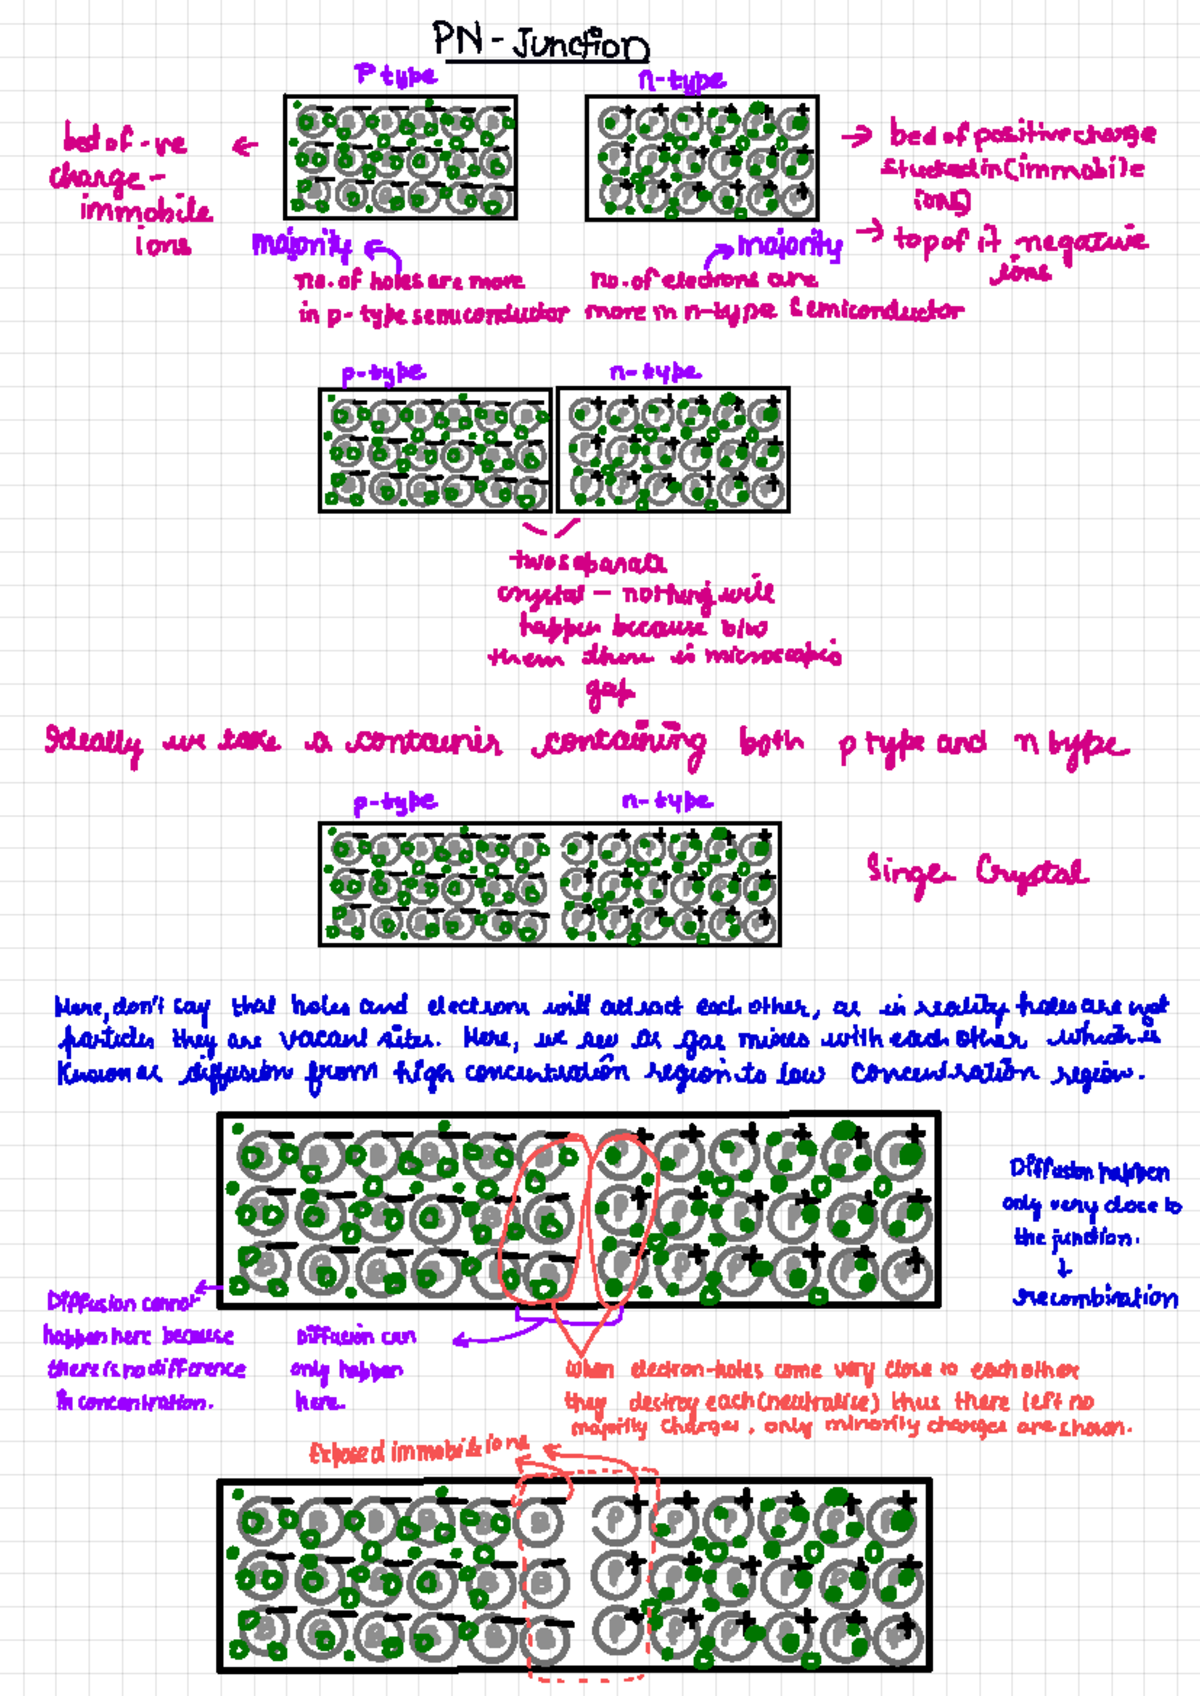 PN - Junction
P type
n-type
bed of -ve
charge -
immobile
ions
bed of positive charge
stucked in (immobile
ions)
top of it negative
ions
majority
majority
no. of holes are more
in p-type semiconductor
no. of electrons are
more in n-type semiconductor
p-type
n-type
two separate
crystal - nothing will
happen because b/w
them there is microscopic
gap
Ideally we take a container containing both p type and n type
p-type
n-type
Singer Crystal
Here, don't say that holes and electrons will attract each other, as in reality holes are not
particles they are vacant sites. Here, we see as gas mixes with each other which is
known as diffusion from high concentration region to low concentration region.
Diffusion happen
only very close to
the junction.
↓
recombination
Diffusion cannot
happen here because
there is no difference
in concentration.
Diffusion can
only happen
here.
When electron-holes come very close to each other
they destroy each (neutralise) thus there left no
majority charges, only minority charges are shown.
Exposed immobile ions